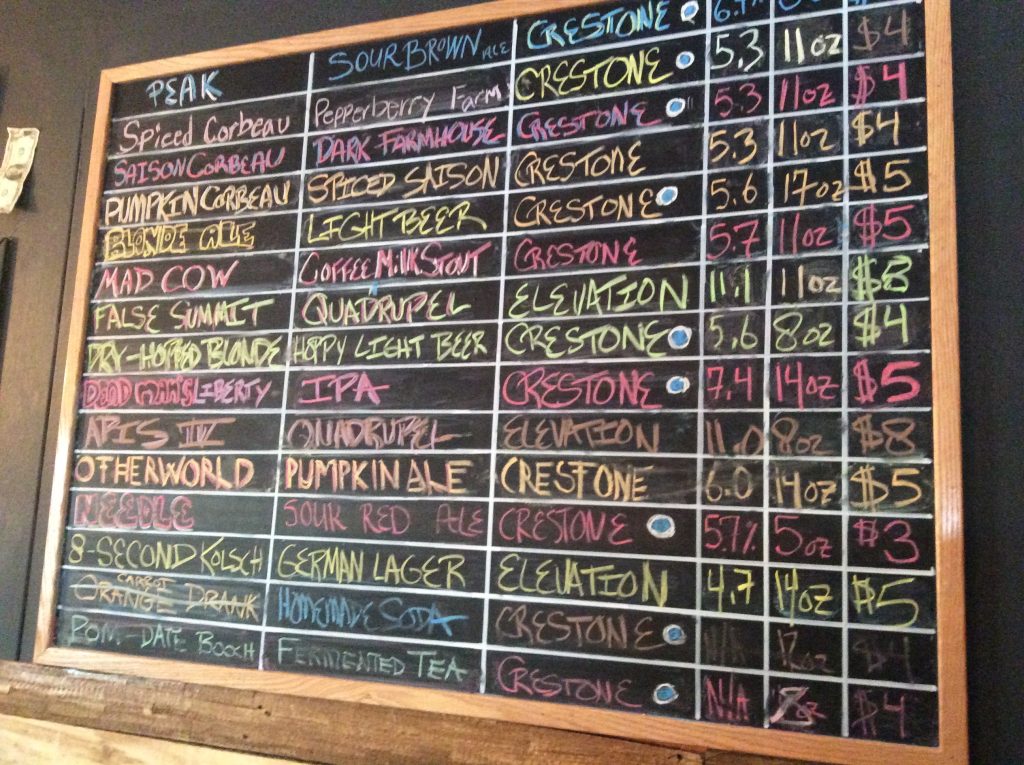 PEAK SOUR BROWN ALE CRESTONE
Spiced Corbeau Pepperberry Farm CRESTONE 5.3 11oz $4
SAISON CORBEAU DARK FARMHOUSE CRESTONE 5.3 11oz $4
PUMPKIN CORBEAU SPICED SAISON CRESTONE 5.3 11oz $4
BLONDE ALE LIGHT BEER CRESTONE 5.6 17oz $5
MAD COW COFFEE MILK STOUT CRESTONE 5.7 11oz $5
FALSE SUMMIT QUADRUPEL ELEVATION 11.1 11oz $8
DRY-HOPPED BLONDE HOPPY LIGHT BEER CRESTONE 5.6 8oz $4
DEAD MAN'S LIBERTY IPA CRESTONE 7.4 14oz $5
APIS IV QUADRUPEL ELEVATION 11.0 8oz $8
OTHERWORLD PUMPKIN ALE CRESTONE 6.0 14oz $5
NEEDLE SOUR RED ALE CRESTONE 5.7% 5oz $3
8-SECOND KOLSCH GERMAN LAGER ELEVATION 4.7 14oz $5
CARROT
ORANGE DRANK HOMEMADE SODA CRESTONE N/A 12oz $4
POM-DATE BOOCH FERMENTED TEA CRESTONE N/A 8oz $4